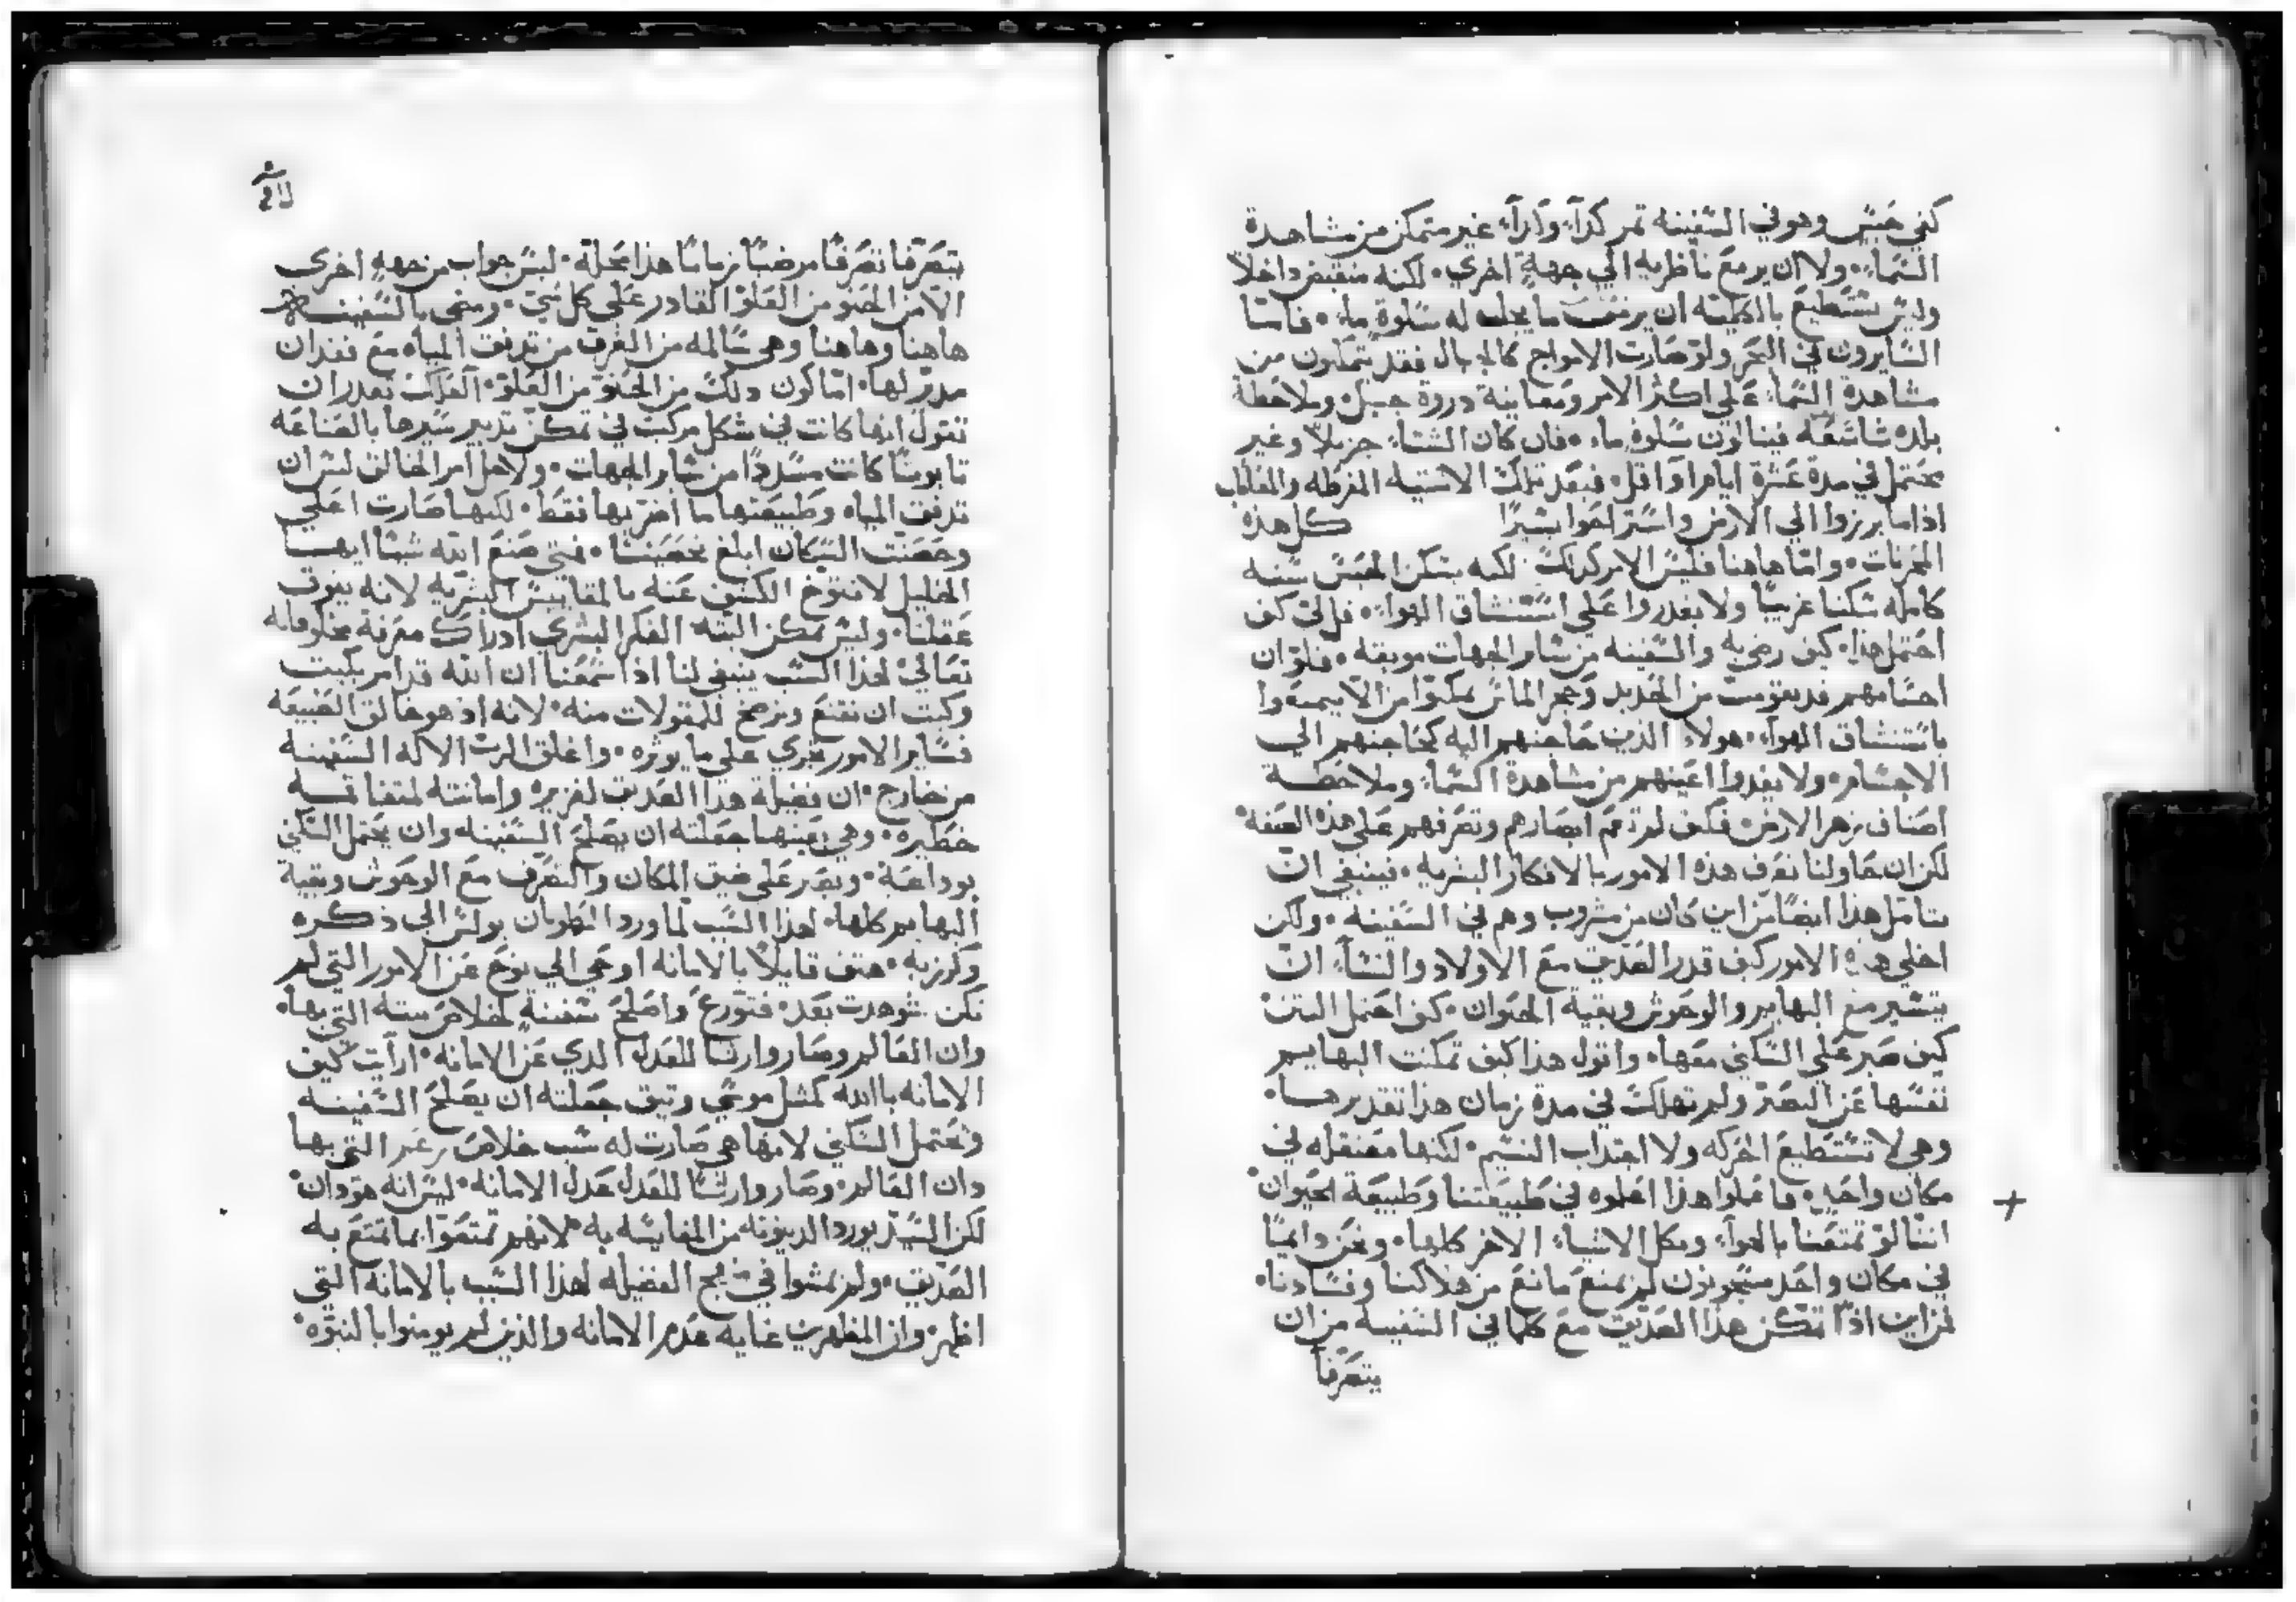 كفي حبيس وهو في السفينه تمر كدآ وآرآ غير متمكن من مشاهدة
السماء ولا ان يرمع ناظريه الي جهةٍ اخري لكنه منقبض داخلاً
وليس يستطيع بالكليه ان يرمق ما يجلب له سلوة ماء فاما
السايرون في البحر ولو صارت الامواج كالجبال فقد يتمكنون من
مشاهدة السماء علي اكثر الامر ومعاينة دروة جبل وملاحظة
بلده شاسعه فينالون سلوة ماء فان كان الشتاء جزيلاً وغير
محتمل في مدة عشرة ايام او اقل فبعد تلك الاشيا المفرطه والمغالب
اذا ما برزوا الي الارض واستراحوا يسيرًا كل هذه
المحزنات واما هاهنا فليس الامر كذلك لكنه يسكن الحبس سنه
كامله سكنا غريبًا ولا يقدروا علي استنشاق الهواء قل لي كيف
احتمل هذا كيف رضي به والسفينه من ساير الجهات موبقه فلو ان
اجسامهم قد تقومت من الحديد وحجر الماس تمكنوا من الا يتمتعوا
باستنشاق الهواء هولاء الذين حاجتهم اليه كحاجتهم الي
الاجسام ولا يغدوا اعينهم من مشاهدة السماء وملاحظة
اصناف زهر الارض فكيف لم تعم ابصارهم وتصرفهم علي هذه الصفه
لكن ان حاولنا نعرف هذه الامور بالافكار البشريه فينبغي ان
نتامل هذا ايضًا من اين كان مشروب وهم في السفينه ولكن
اخلي هذه الامور كيف قدر الصديق مع الاولاد والنساء ان
يتسير مع البهايم والوحوش وبقية الحيوان كيف احتمل النتن
كيف صبر علي السكني معها واقول هذا كيف تمكنت البهايم
نفسها عن البصر ولم تهلك في مدة زمان هذا تقديرها
وهي لا تستطيع الحركه ولا اجتداب النسيم لكنها معتقله في
مكان واحدٍ فاعملوا هذا اعلموه في طبيعتنا وطبيعة الحيوان
اننا لو تمتعنا بالهواء وبكل الاشياء الاخر كلها ونحن دايمًا
في مكان واحد مسجونون لم يمنع مانع من هلاكنا وفسادنا
لمن اين اذًا تمكن هذا الصديق مع كلما في السفينه من ان
يتصرفا
يتصرفا تصرفًا مرضيًا زمانًا هذا محلة ليس جواب من جهةٍ اخري
الا من الحنو من العلو القادر علي كل شي ومضي بالسفينه
هاهنا وهاهنا وهي سالمه من الغرق من تدفق المياه مع فقدان
مدبر لها اما كون ذلك من الحنو من العلو الفلك تقدر ان
تقول انها كانت في شكل مركب في تمكن تدبير سيرها بالصناعه
تابوتنًا كانت مسدودًا من ساير الجهات ولاجل امر الخالق ليس ان
تدفق المياه وطبيعتها ما اضر بها فقط لكنها صارت اعلي
وحصنت السكان ابلغ تحصينًا فمتي صنع الله شيئًا ايها
الخليل لا نتوخ الكشف عنه بالمقاييس البشريه لانه يفوق
عقلنا وليس يمكن البته الفكر البشري ادراك معرفة مخلوقاته
تعالي لهذا السبب ينبغي لنا اذا سمعنا ان الله قد امر بكيت
وكيت ان نقنع ونرضخ للمقولات منه لانه اذ هو خالق الطبيعه
فساير الامور تجري علي ما يوثره واغلق الرب الاله السفينه
من خارج ان فضيلة هذا الصديق لغزيره وامانته لمتفاقمه
خطيره وهي بعينها جعلته ان يصلح السفينه وان يحتمل السكني
بوداعة وبصبر علي ضيق المكان والتصرف مع الوحوش وبقية
البهايم كلها لهذا السبب لما ورد الطوبان بولس الي ذكره
وكرز به هتف قايلاً بالامانه اوعي الي نوح عن الامور التي لم
تكن شوهدت بعد فتورع واصلح سفينةً لخلاص بيته التي بها
وان العالم وصار وارثًا للعدل الذي عن الامانه ارايت كيف
الامانه بالله كمثل موسي وثيق جعلته ان يصلح السفينه
وتحتمل السكني لانها هي صارت له سبب خلاص التي بها
دان العالم وصار وارثًا للعدل عدل الامانه ليس انه هو دان
لكن السيد يورد الدينونه من المقايسه به لانهم تمتعوا بما تمتع به
الصديق ولم يمشوا في نهج الفضيله لهذا السبب بالامانه التي
اظهر وان المظهرين غاية عدم الامانه والذين لم يومنوا بالنبوه